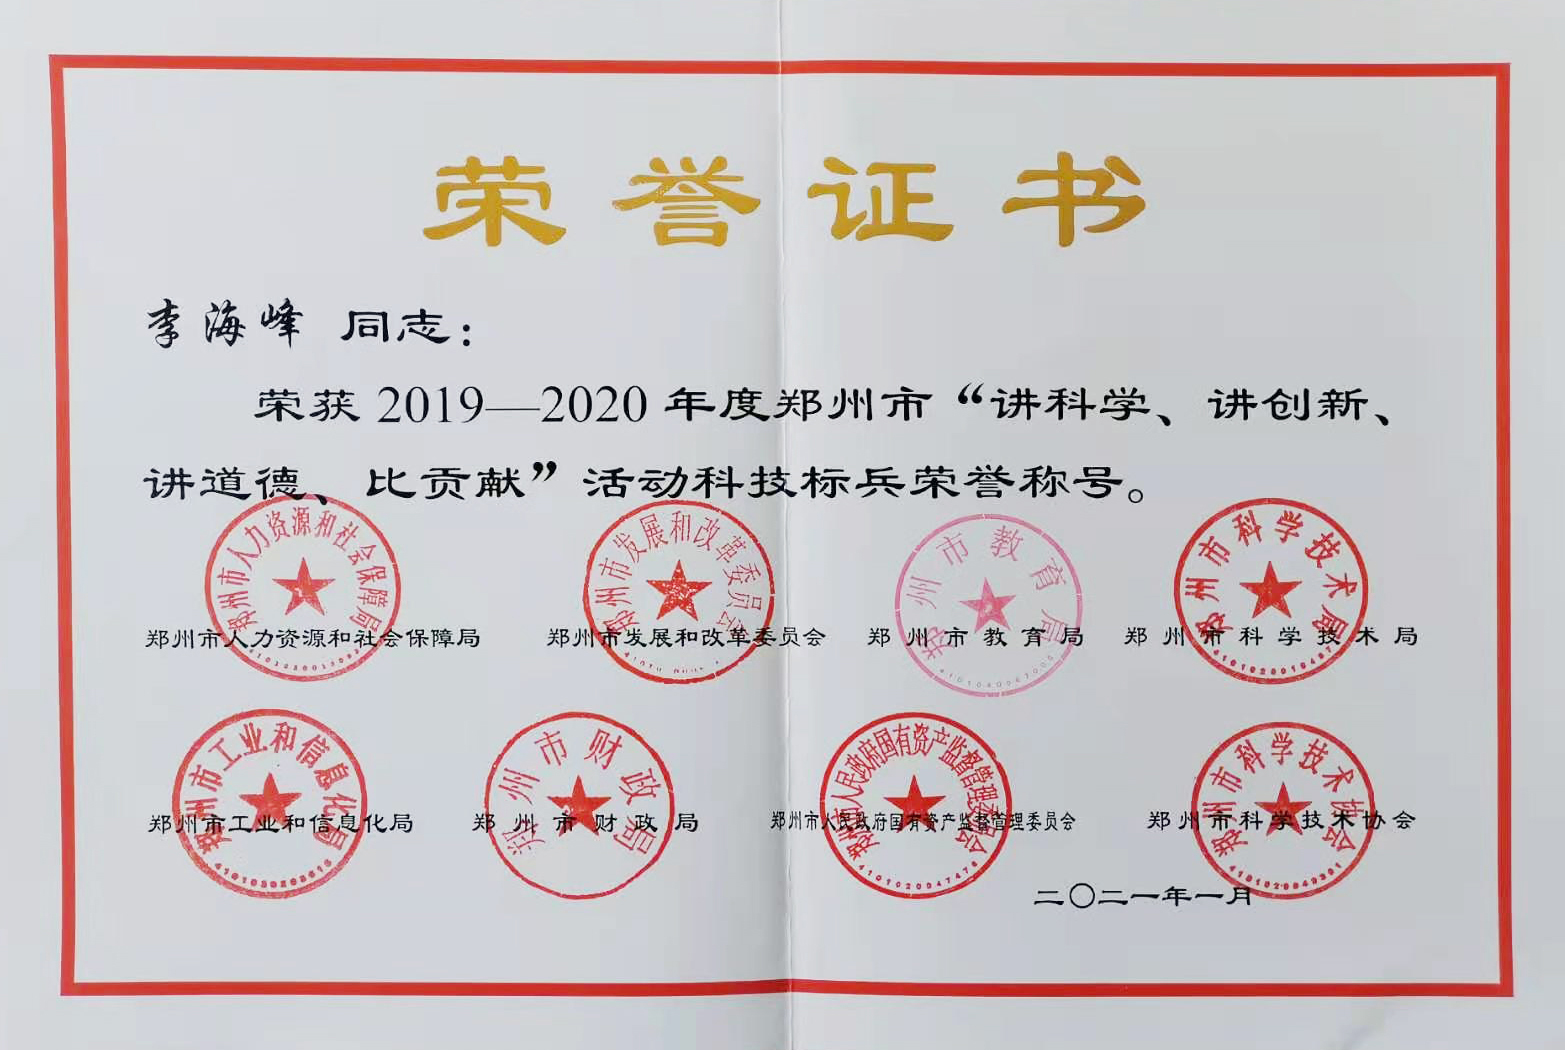 荣誉证书
李海峰 同志：
荣获 2019—2020 年度郑州市“讲科学、讲创新、
讲道德、比贡献”活动科技标兵荣誉称号。
郑州市人力资源和社会保障局
郑州市发展和改革委员会
郑州市教育局
郑州市科学技术局
郑州市人力资源和社会保障局 郑州市发展和改革委员会 郑州市教育局 郑州市科学技术局
郑州市工业和信息化局
4101020202615
郑州市财政局
郑州市人民政府国有资产监督管理委员会
4101020047476
郑州市科学技术协会
郑州市工业和信息化局 郑州市财政局 郑州市人民政府国有资产监督管理委员会 郑州市科学技术协会
二〇二一年一月